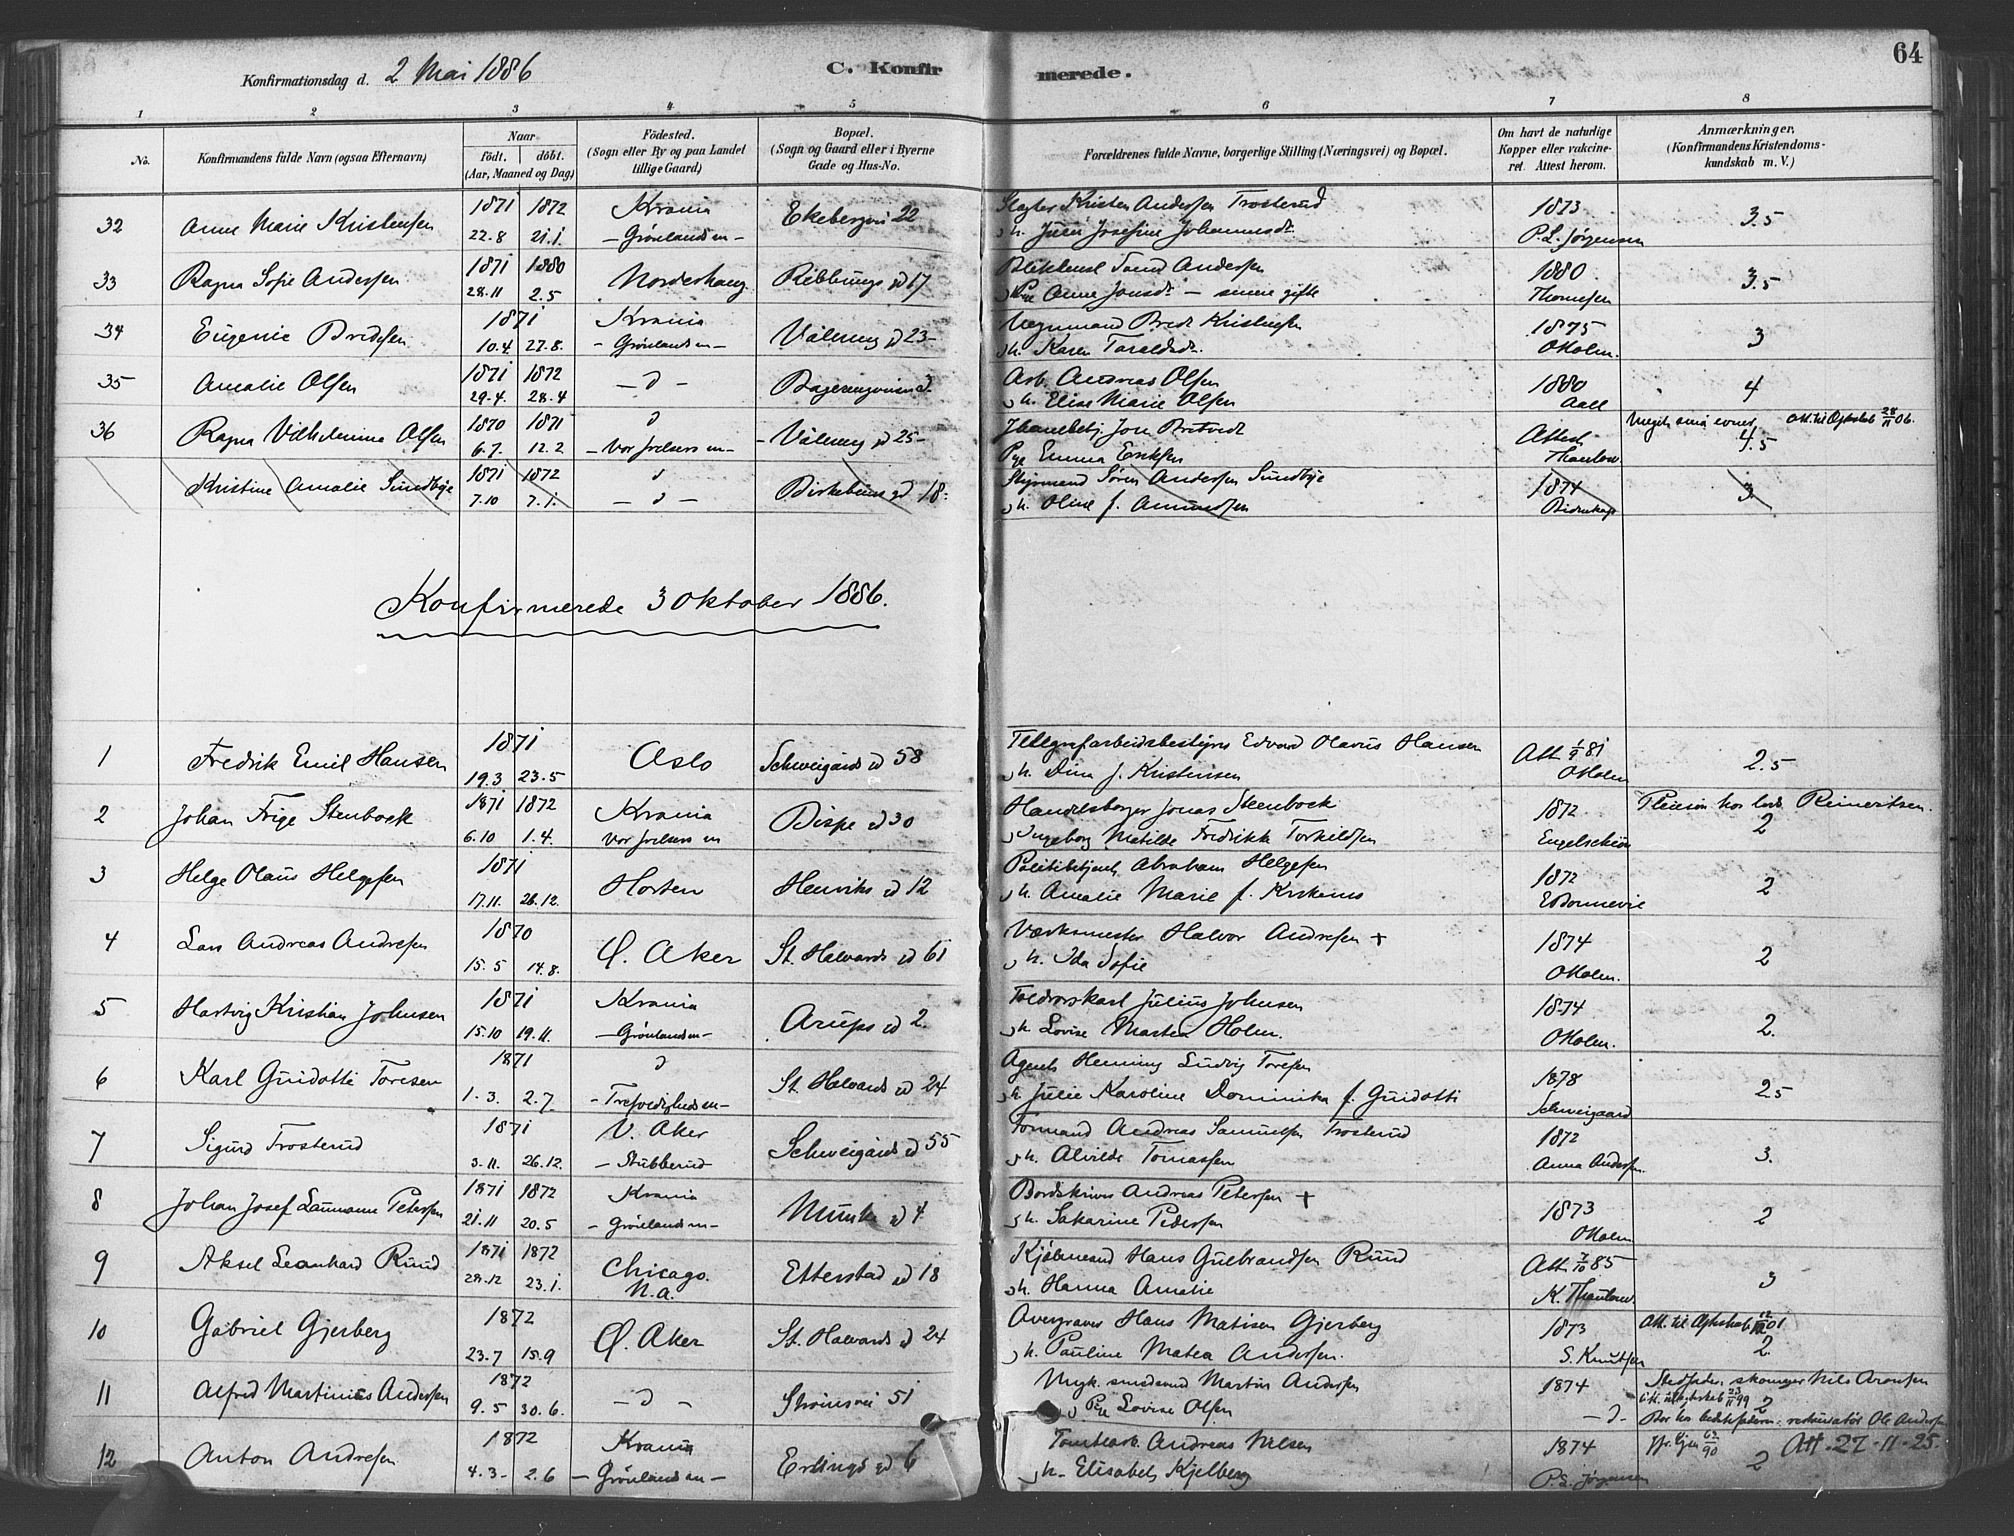 64
Konfirmationsdag d. 2 Mai 1886
C. Konfirmerede.
1 2 3 4 5 6 7 8
No. Konfirmandens fulde Navn (ogsaa Efternavn) Naar født. døbt. (Aar, Maaned og Dag) Fødested. (Sogn eller By og paa Landet tillige Gaard) Bopæl. (Sogn og Gaard eller i Byerne Gade og Hus-No. Forældrenes fulde Navne, borgerlige Stilling (Næringsvei) og Bopæl. Om havt de naturlige Kopper eller vaccineret. Attest herom. Anmærkninger. (Konfirmandens Kristendomskundskab m. V.)
32 Anne Marie Kristensen 1871 22.8 1872 21.1. Krania Grønlands m Ekebergvei 22 Kristen Andersen Trosterud 1873 3.5
h. Julie Josefine Johannesdr. P. L. Jørgensen
33 Ragna Sofie Andersen 1871 28.11 1880 2.5 Norderhaug Ribbungs gd 17 Andersen 1880 3.5
Pge Anne Jonsdr - senere gifte Thomesen
34 Eugenie Bredesen 1871 10.4. 27.8. Krania - Grønlands m - Vålereng gd 23 Vognmand Brede Kristensen 1875 3
h. Karen Taraldsdr. O Holm.
35 Amalie Olsen 1871 29.4. 1872 28.4 - d - Arb. Andreas Olsen 1880 4
h. Elise Marie Olsen Aall
36 Ragna Vilhelmine Olsen 1870 6.7. 1871 12.2 d - Vor frelsers m - Vålereng gd 25 Jon Bratvedt Attest Meget små evner 4.5 Att. til Ægteskab 28/11 06.
Pge Emma Eriksen Thaulow.
Kristine Amalie Sundbye 1871 7.10 1872 7.1. d - d - Birkebeiner gd 18. Styrmand Søren Andersen Sundbye 1874 3
h. Oline f. Amundsen
Konfirmerede 3 Oktober 1886.
1 Fredrik Emil Hansen 1871 19.3 23.5 Oslo Schweigårds gd 58 Telegrafarbeidsbestyrer Edvard Olavus Hansen Att 1/9 81 2.5
h. Dina f. Kristensen O Holm
2 Johan Frige Stenbock 1871 6.10 1872 1.4. Krania Vor frelsers m Bispe gd 30 Handelsborger Jonas Steenbock 1872 Pleiesøn hos Reinertsen. 2
Ingeborg Matilde Fredrikke Torkildsen Engelschiøn
3 Helge Olaus Helgesen 1871 17.11. 26.12. Horten Henriks gd 12 Politibetjent Abraham Helgesen 1872 2
h. Amalie Marie f. E Bonnevie
4 Lars Andreas Andresen 1870 15.5 14.8. Ø. Aker St. Halvards gd 61 Værksmester Halvor Andresen + 1874 2
h. Ida Sofie O Holm.
5 Hartvig Kristian Johnsen 1871 15.10 19.11. Krania - Grønlands m - Arups gd 2. Toldrorskarl Julius Johnsen 1874 2.
h. Lovise Martea Holm. O Holm.
6 Karl Guidotti Toresen 1871 1.3. 2.7. d - Trefoldigheds m - St. Halvards gd 24 Agent Henning Ludvig Toresen 1878 2.5
h. Julie Karoline Dominika f. Guidotti Schweigaard
7 Sigurd Trosterud 1871 3.11. 26.12. V. Aker - Stubberud Schweigårds gd 55 Formand Andreas Samuelsen Trosterud 1872 3.
h. Alvilde Tomassen Anna Andersen
8 Johan Josef Laumann Petersen 1871 21.11 1872 20.5 Krania - Grønlands m - Munke gd 4 Bordskriver Andreas Petersen + 1873 2
h. Sakarine Pedersen O Holm
9 Aksel Leonhard Ruud 1871 28.12 1872 23.1. Chicago. N.a. Etterstad gd 18 Kjølmand Hans Gulbrandsen Ruud Att 7/10 85 3
h. Hanna Amalie K. Thaulow.
10 Gabriel Gjerberg 1872 23.7 15.9 Ø. Aker St. Halvards gd 24 Hans Matisen Gjerberg 1873 Att. til Ægteskab 01 2.
h. Pauline Matea Andersen. S. Knutsen
11 Alfred Martinius Andersen 1872 9.5 30.6. - d - Strømsvei 51 smedsvend Martin Andersen 1874 Stedfader, skomager Nils Aronsen 2
Pge Lovise Olsen - d - Bor hos bedstefaderen: Ole Andersen
12 Anton Andresen 1872 4.3 2.6 Krania - Grønlands m - Erlings gd 6 Tomtearb. Andreas Nilsen 1874 2 Att. 27-11-25.
h. Elisabet Kjelberg P. L. Jørgensen